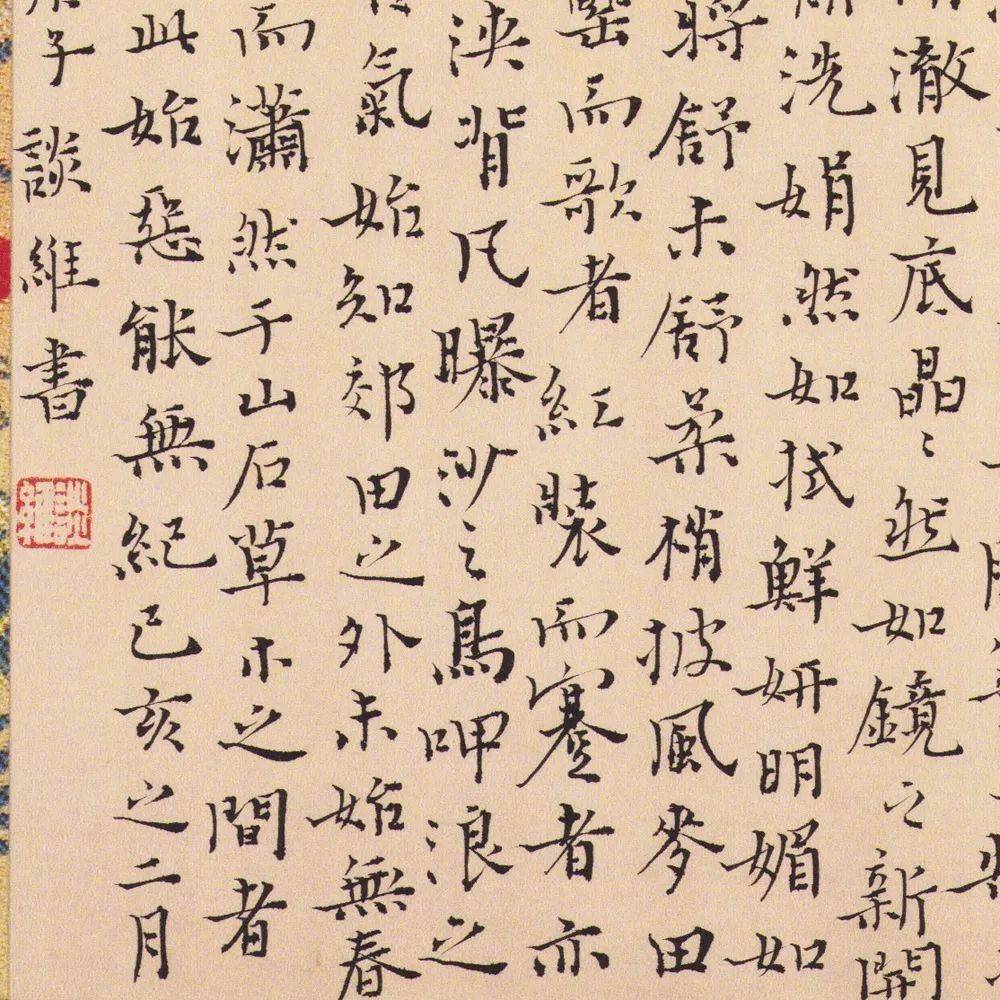 澈見底晶〻然如鏡之新開
洗娟然如拭鮮妍明媚如
將舒未舒柔梢披風麥田
罍而歌者紅裝而蹇者亦
浹背凡曝沙之鳥呷浪之
氣始知郊田之外未始無春
而瀟然于山石草木之間者
此始惡能無紀己亥之二月
子談維書
談維